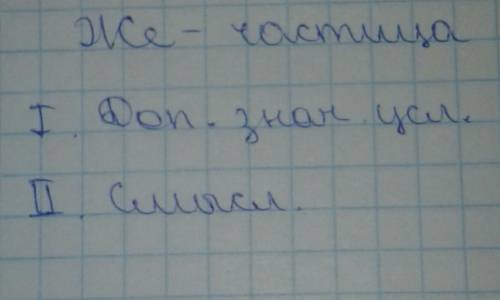 Же - частица
I. Доп. знач. усл.
II. Смысл.